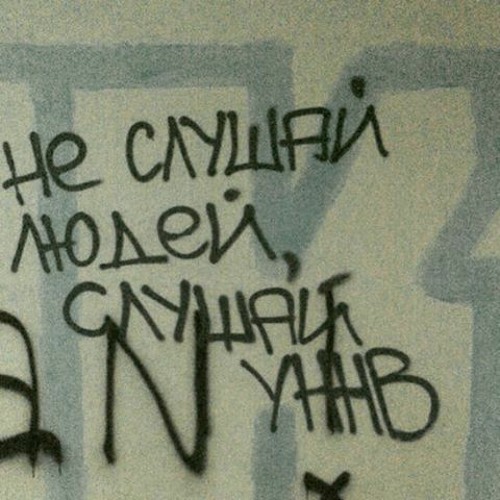 не слушай
людей,
слушай
УННВ
aN